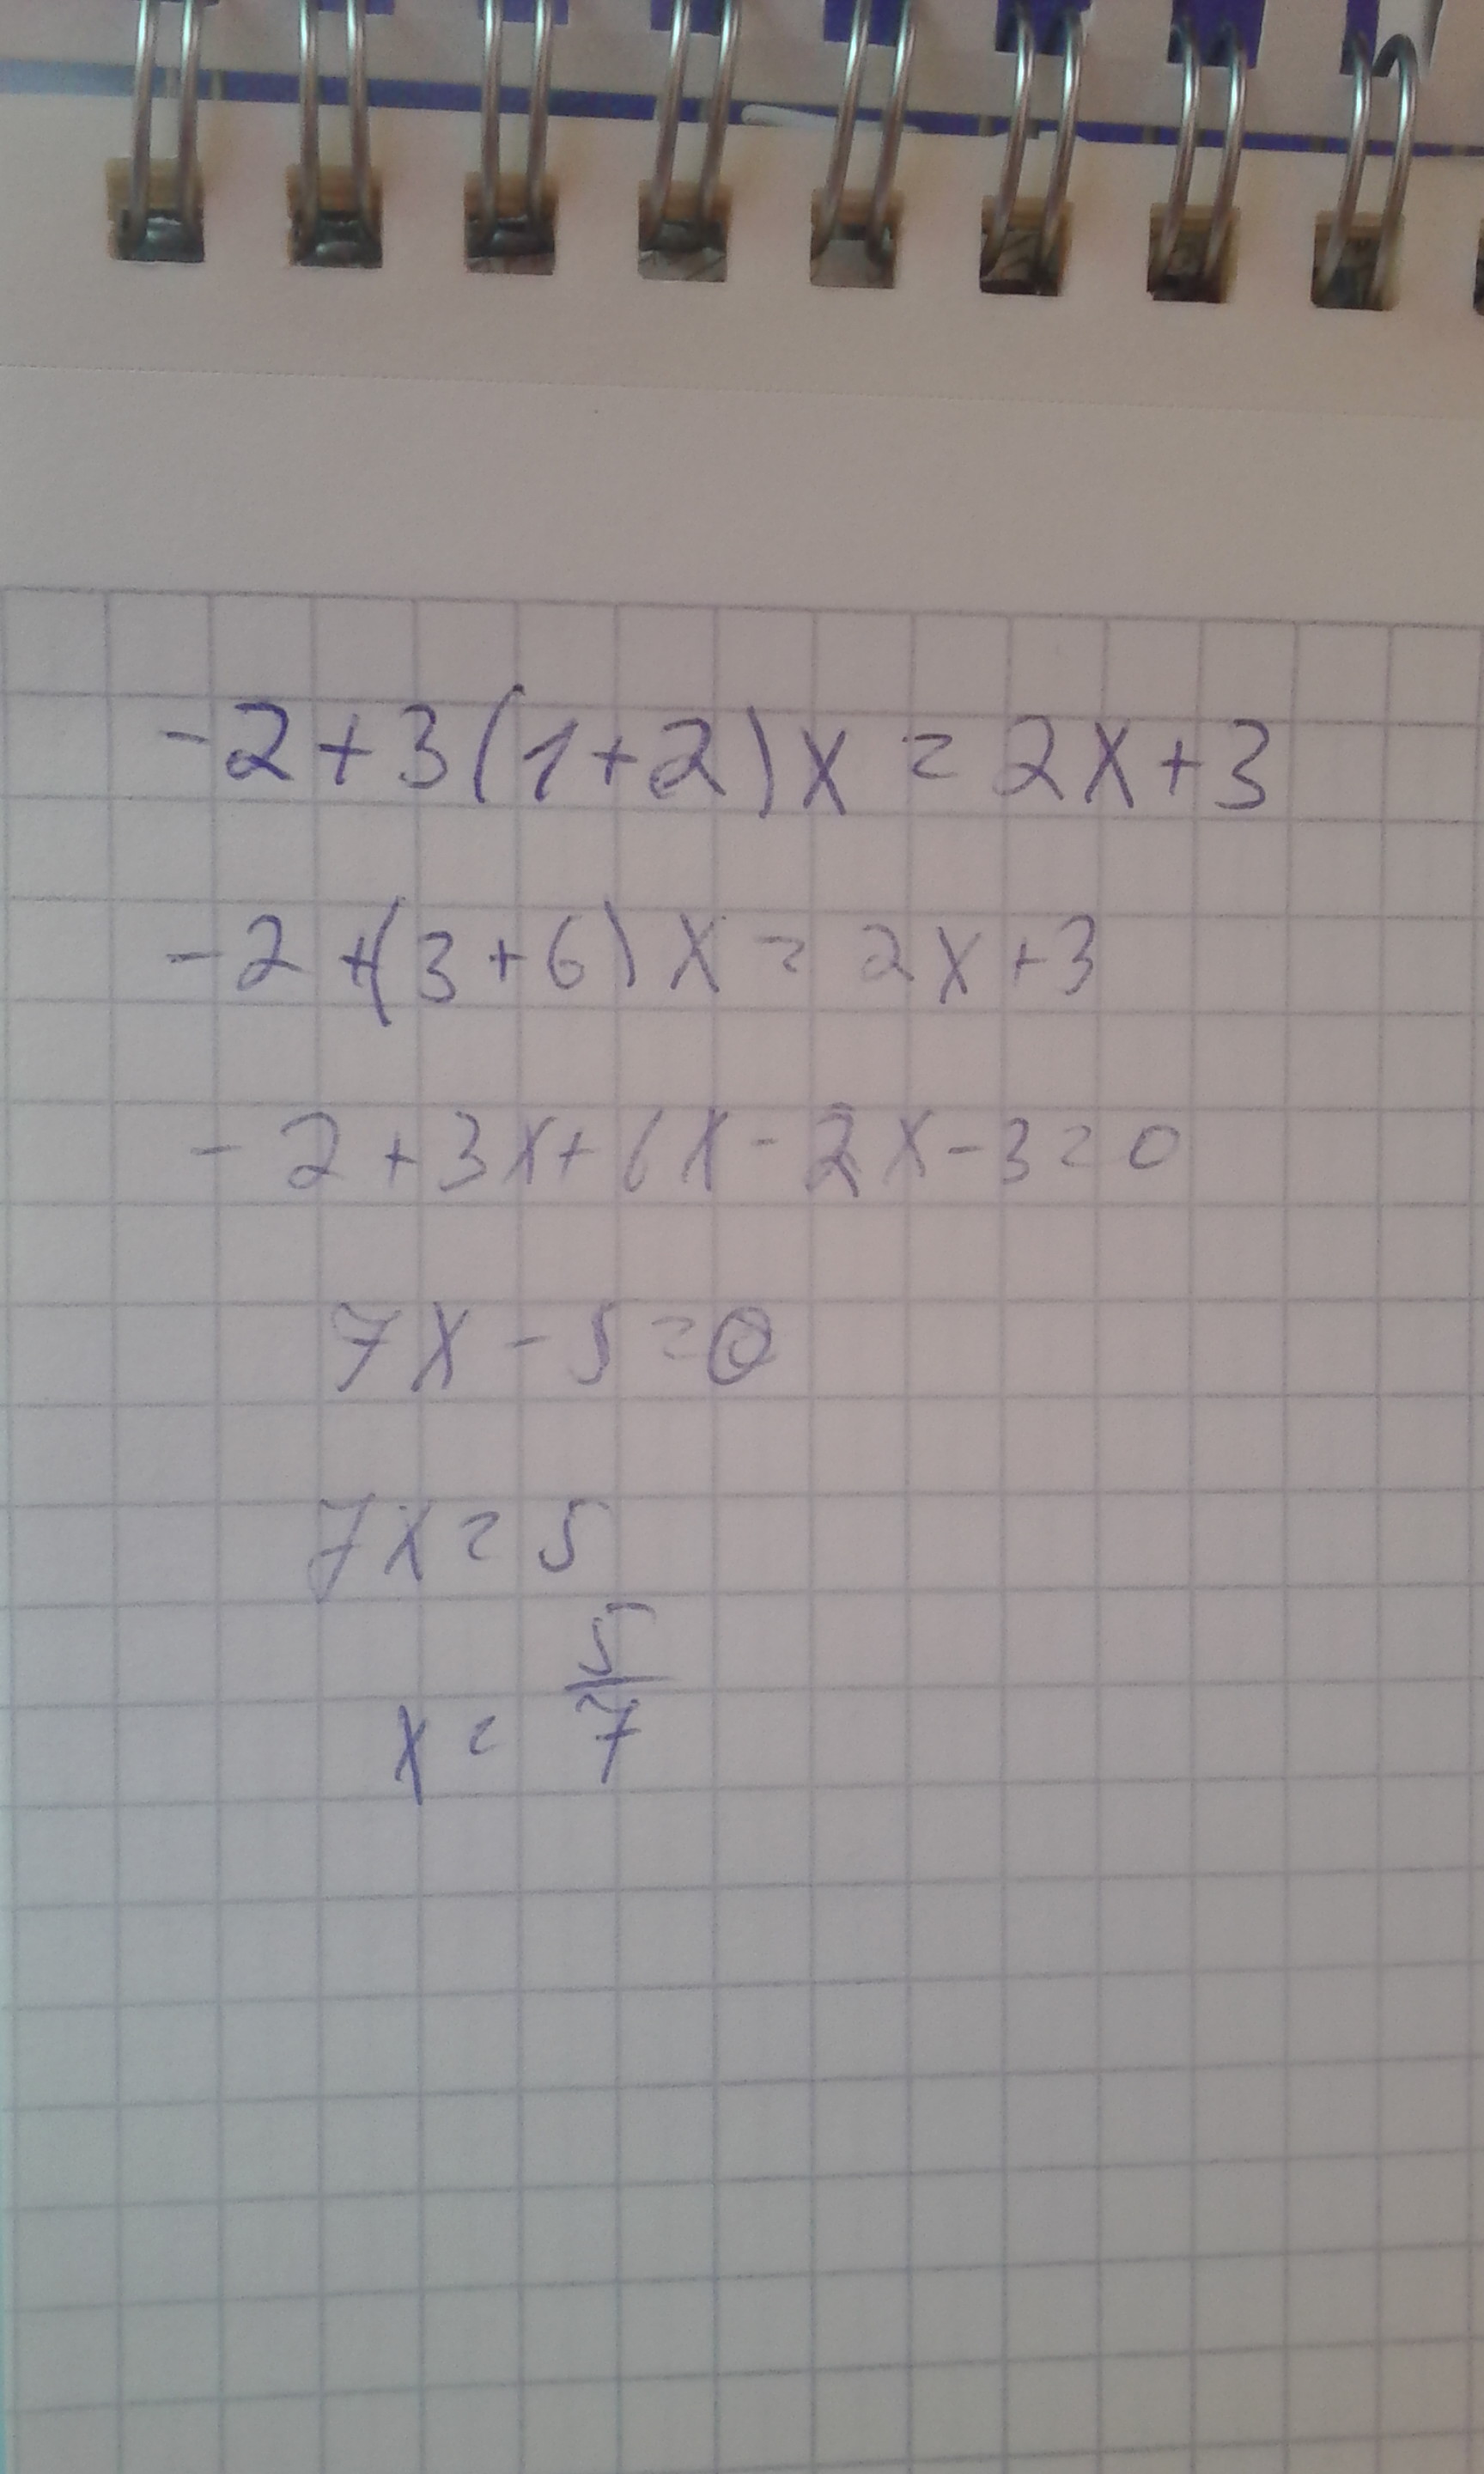 -2+3(1+2)x=2x+3
-2+(3+6)x=2x+3
-2+3x+6x-2x-3=0
7x-5=0
7x=5
x=5/7